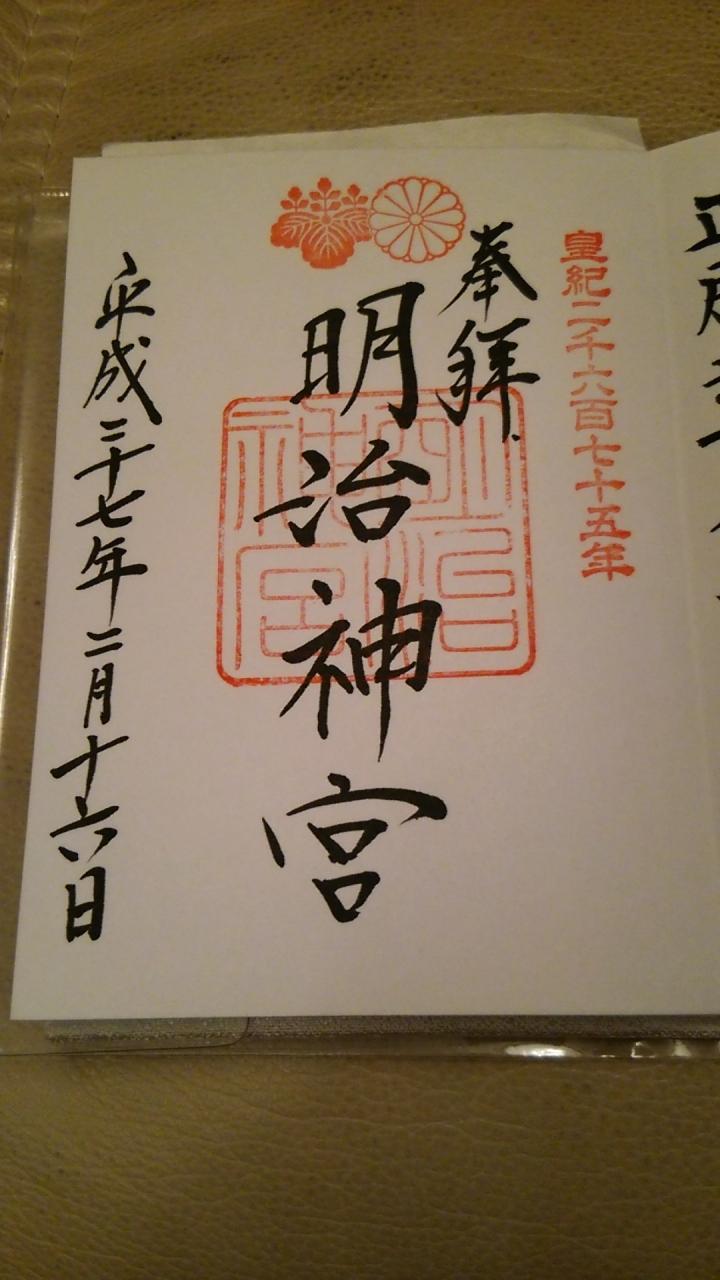 皇紀二千六百七十五年
奉拝
明治神宮
明治神宮
平成二十七年二月十六日